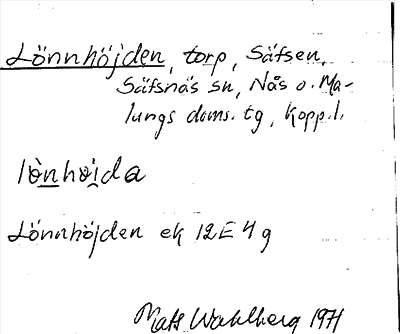 Lönnhöjden, torp, Säfsen,
Säfsnäs sn, Nås o. Ma-
lungs doms. tg, Kopp. l.
lònhöi̯da
Lönnhöjden ek 12E4g
Mats Wahlberg 1971